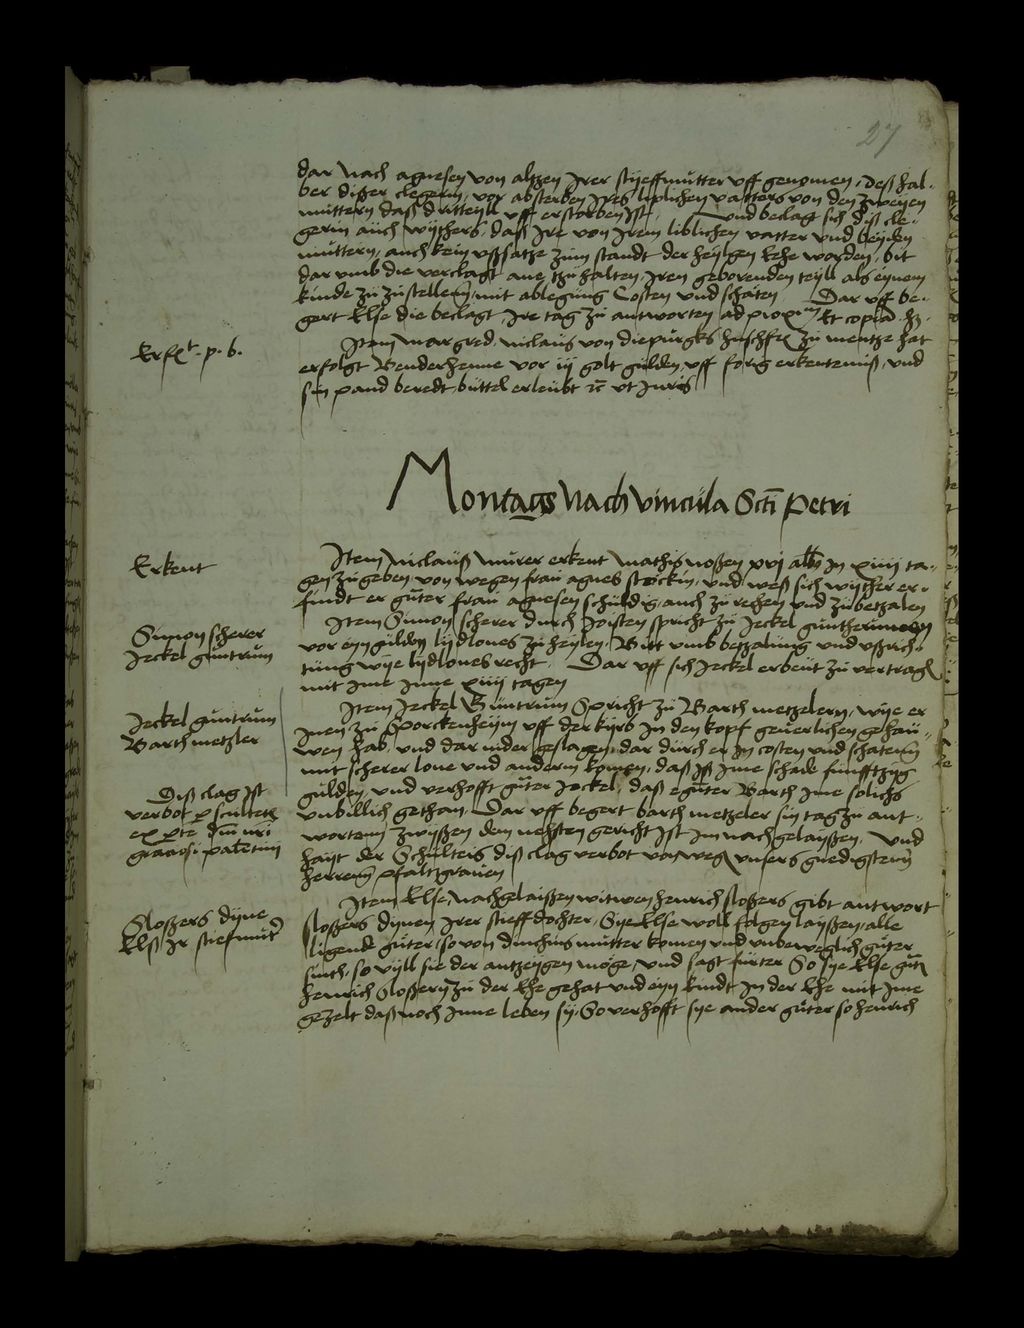 27
dar nach agnesen von altzen Irer stijeffmutter uff genomen, deß hal-
ber dißer clegerin, vor absterben Irs liplichen vatters von den zweyen
muttern daß dritteyll uff erstorben ist. Und beclagt sich diß cle-
gerin auch wythers, daß Ire von Irem liblichen vatter und beyden
muttern, auch kein ußsatze zum standt der heylgen Eehe worden, bit
dar umb die verclagt ane tzu halten, Iren geborenden teyll als eynem
kinde zu zustellenn, mit ablegung Costen und schaten Dar uff be-
gert Else die beclagt, Ire tag zu antworten ad proxm Et copiam
Erfolt. p. b.
Item margred niclaus von diepurgks zu mentze hat
erfolgt Benderhenne vor iij golt gulden, uff forig erkentemiß, und
sin pand beredt, buttel erleubt rc ut Juris
Montags Nach vincula Scti Petri
Erkent
Item Niclauß murer erkent mathis noßen xvj alb In xiiij ta-
gen zu geben, von wegen frau agnes stockin, und weß sich wyther er-
findt er guter frau agnesen schuldig, auch zu rechen und zu betzalen
Simon scherer
Jeckel guntrum
Item Simon scherer durch Joisten spricht zu Jeckel guntherumen
vor eyn gulden lydlones zu heylen, Bitt umb betzalung und ußrich-
tung wye lydlones recht. Dar uff sich Jeckel erbeut zu vertragen
mit Ime Inne xiiij tagen
Jeckel guntrum
Barth metzler
Item Jeckel Guntrum Spricht zu Barth metzelern, wye er
Inen zu Sporckenheym uff der kyrb In den kopf geuerlichen gehau-
wen hab, und dar nider geslagen, dar durch er In costen und schatenn
mit scherer lone und anderm komen, daß Ist Ime schade funfftzyg
gulden, und verhofft guter Jeckel, daß eguter Barth Ime solichs
unbillich gethan, Dar uff begert barth metzeler sin tag zu ant-
worten, zwyssen dem nehsten gericht Ist Im nachgelayssen, Und
hayt der Schulteis diß clag verbot von wegen unsers gnedigstenn
herrenn pfaltzgrauen
Diß clag Ist
verbot p scultetum
ex pte dni nri
graciosi palatini
Sloßers dyne
Elß Ir stiefmuter
Item Else, Nachgelaißen witwen, henrich sloßers gibt antwort
sloßers dynen, Irer stieff dochter, Sye Else woll folgen laysßen, alle
ligende guter, so von dynchins mutter komen und unbeweglich guter
sinth, so vyll sie der antzeygen moge, und sagt furter So sye Else guter
henrich sloßern zu der Ehe gehat und eyn kindt In der Ehe mit Ime
getzelt daß noch Inne leben sy, So verhofft sye ander guter so henrich